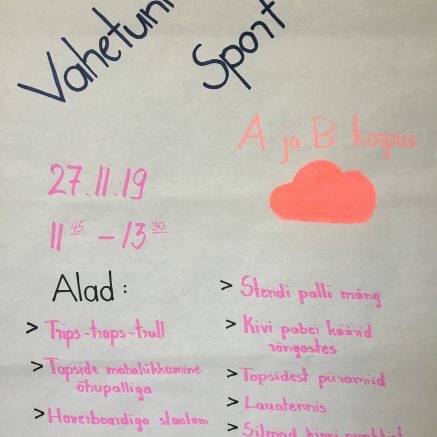 Vahetunni
Sport
A ja B korpus
27.11.19
11 45 – 13 30
Alad:
> Trips-traps-trull
> Topside mahalükkamine
õhupalliga
> Hoverboardiga slaalom
> Stendi palli mäng
> Kivi paber käärid
rõngastes
> Topsidest püramiid
> Lauatennis
> Silmad kinni